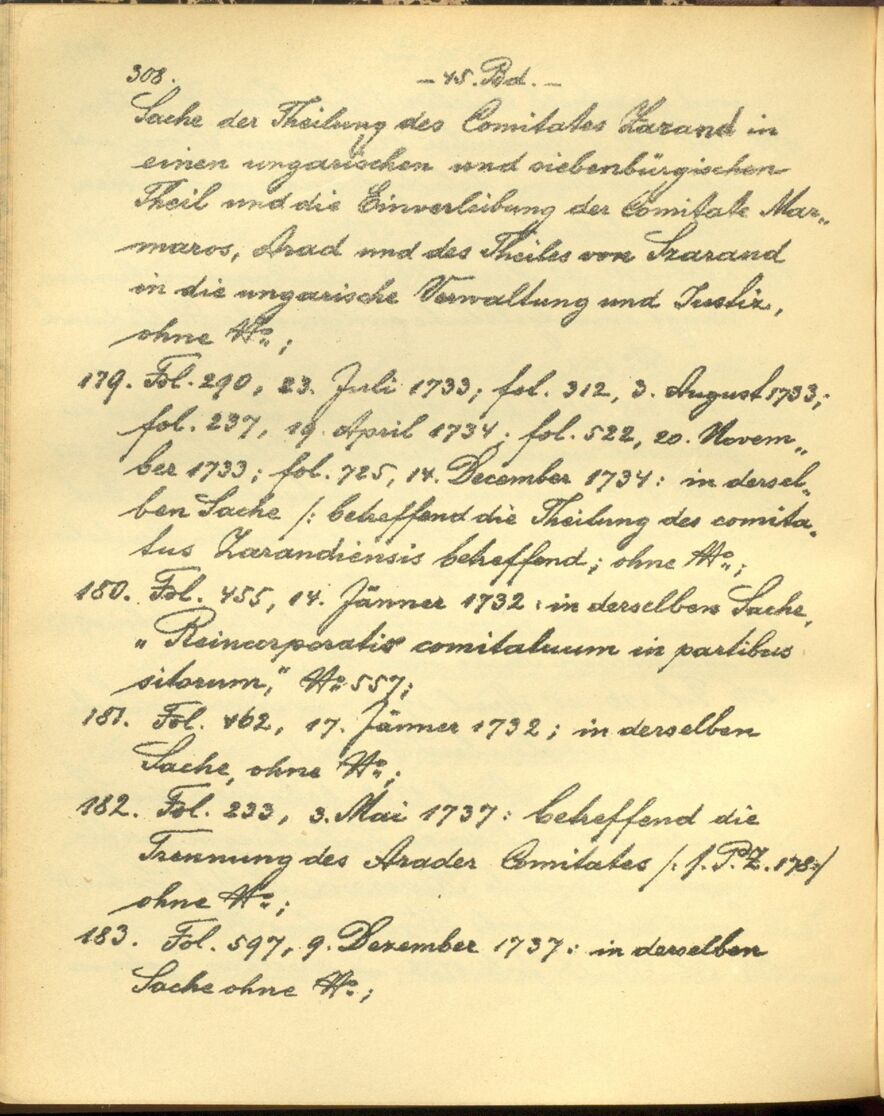 308. – 45. Bd. –
Sache der Theilung des Comitates Zarand in
einen ungarischen und siebenbürgischen
Theil und die Einverleibung der Comitate Mar„
maros, Arad und des Theiles von Szarand
in die ungarische Verwaltung und Justiz,
ohne No.;
179. Fol. 290, 23. Juli 1733; fol. 312, 3. August 1733;
fol. 237, 19. April 1734; fol. 522, 20. Novem„
ber 1733; fol. 725, 14. December 1734: in dersel„
ben Sache /: betreffend die Theilung des comita„
tus Zarandiensis betreffend; ohne No.;
180. Fol. 455, 14. Jänner 1732: in derselben Sache,
„Reincorporatio comitatuum in partibus
sitorum," No. 557;
181. Fol. 462, 17. Jänner 1732; in derselben
Sache, ohne No.;
182. Fol. 233, 3. Mai 1737: betreffend die
Trennung des Arader Comitates /: f. P.Z. 178:/
ohne No.;
183. Fol. 597, 9. Dezember 1737: in derselben
Sache ohne No.;